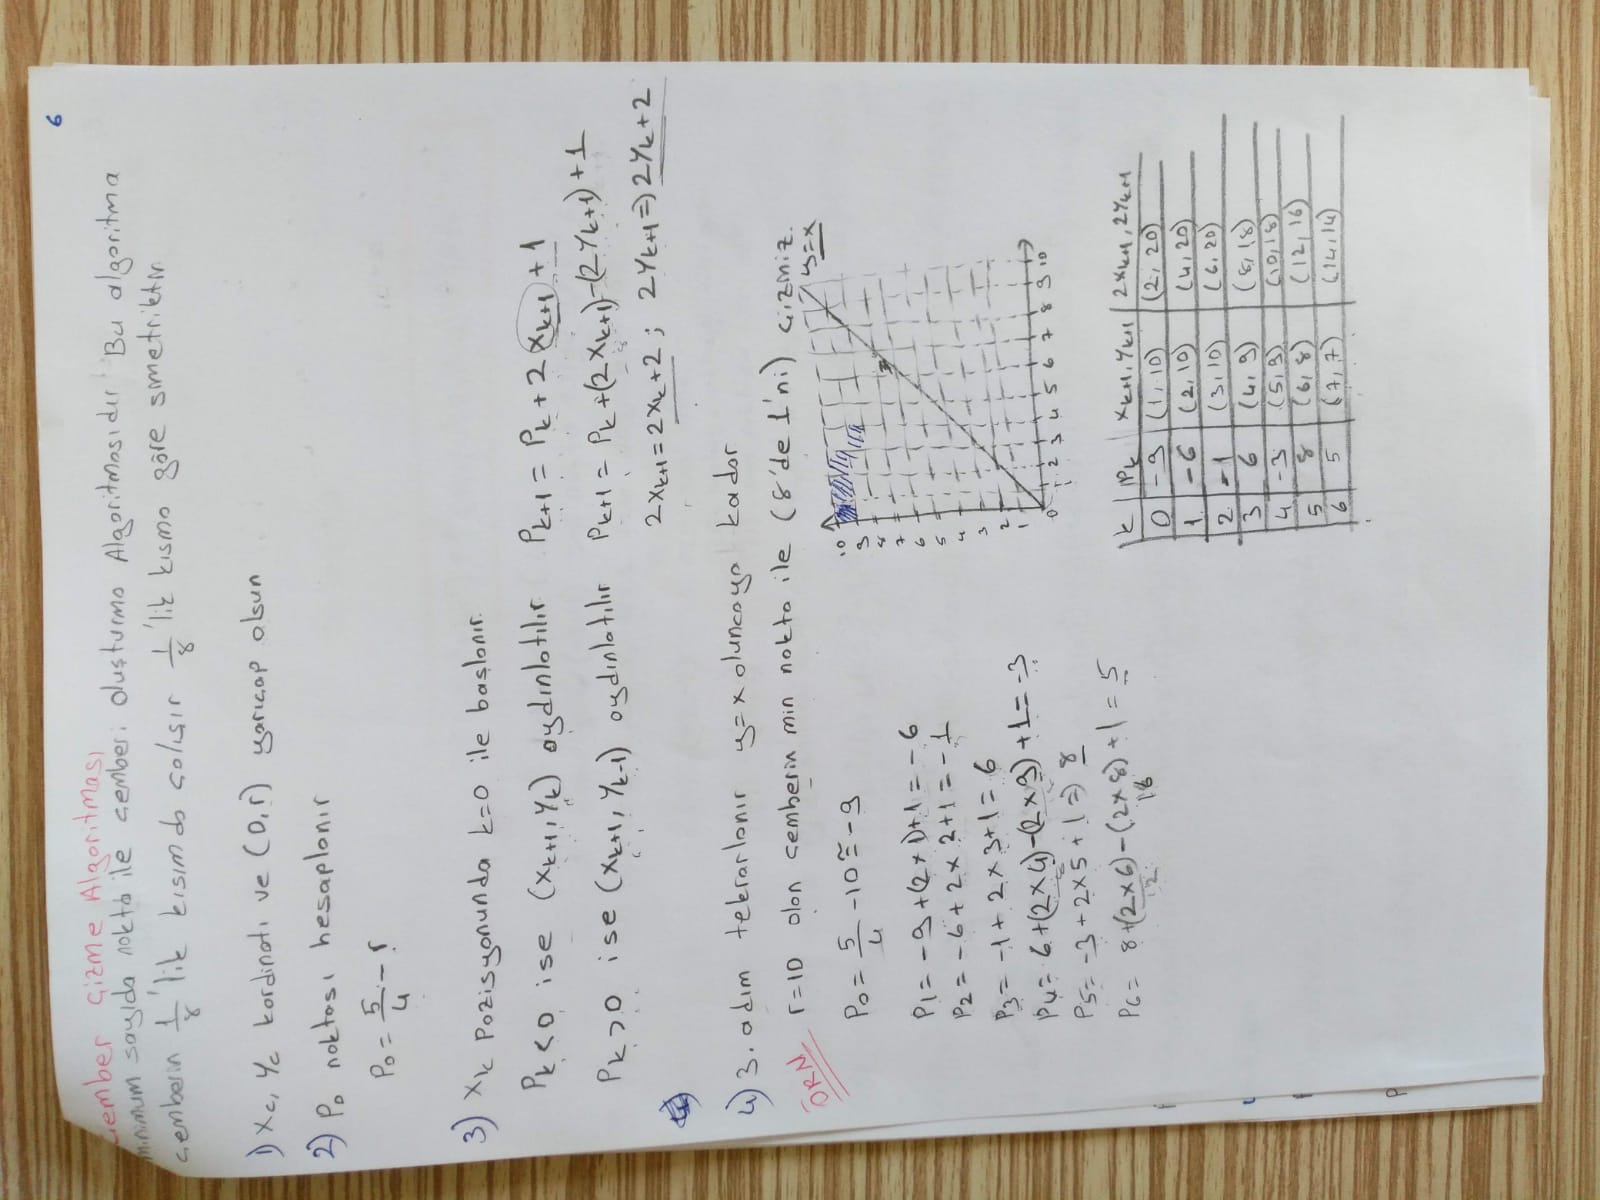 6
Çember Çizme Algoritması
Minimum sayıda nokta ile çemberi oluşturma Algoritmasıdır Bu algoritma
çemberin 1/8'lik kısımda çalışır 1/8'lik kısma göre simetriktir.
1) xc, yc kordinatı ve (0,r) yarıçap olsun
2) P0 noktası hesaplanır
P0 = 5/4 - r
3) xk pozisyonunda k=0 ile başlanır.
Pk < 0 ise (xk+1, yk) aydınlatılır Pk+1 = Pk + 2xk+1 + 1
Pk > 0 ise (xk+1, yk-1) aydınlatılır Pk+1 = Pk + (2xk+1) - (2yk+1) + 1
2xk+1 = 2xk + 2 ; 2yk+1 => 2yk + 2
4) 3. adım tekrarlanır y=x oluncaya kadar
ÖRN r=10 olan çemberin min nokta ile (8'de 1'ni) çizmiz.
P0 = 5/4 - 10 ≅ -9
P1 = -9 + (2x1) + 1 = -6
P2 = -6 + 2x2 + 1 = -1
P3 = -1 + 2x3 + 1 = 6
P4 = 6 + (2x4) - (2x9) + 1 = -3
P5 = -3 + 2x5 + 1 => 8
P6 = 8 + (2x6) - (2x8) + 1 = 5
12 16
y=x
10
9
8
7
6
5
4
3
2
1
0 1 2 3 4 5 6 7 8 9 10
k | Pk | xk+1, yk+1 | 2xk+1, 2yk+1
0 | -9 | (1,10) | (2,20)
1 | -6 | (2,10) | (4,20)
2 | -1 | (3,10) | (6,20)
3 | 6 | (4,9) | (8,18)
4 | -3 | (5,9) | (10,18)
5 | 8 | (6,8) | (12,16)
6 | 5 | (7,7) | (14,14)